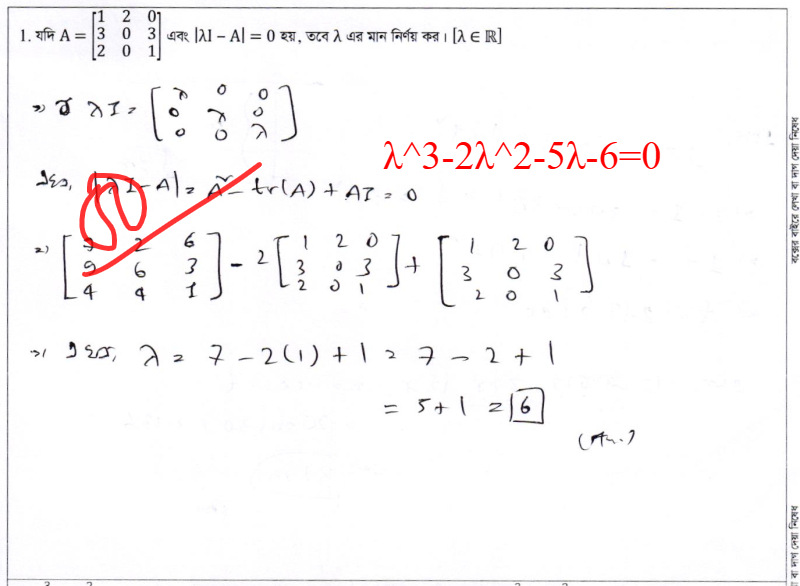 1. যদি A = [1 2 0; 3 0 3; 2 0 1] এবং |λI − A| = 0 হয়, তবে λ এর মান নির্ণয় কর। [λ ∈ ℝ]
⇒ λI = [λ 0 0; 0 λ 0; 0 0 λ]
λ^3-2λ^2-5λ-6=0
এখন, |λI - A| = A² - tr(A) + AI = 0
[3 2 6; 9 6 3; 4 4 1] - 2 [1 2 0; 3 0 3; 2 0 1] + [1 2 0; 3 0 3; 2 0 1]
এখন, λ = 7 - 2(1) + 1 = 7 - 2 + 1
= 5 + 1 = 6
(Ans.)
বক্সের বাইরে লেখা বা দাগ দেয়া নিষেধ
বা দাগ দেয়া নিষেধ